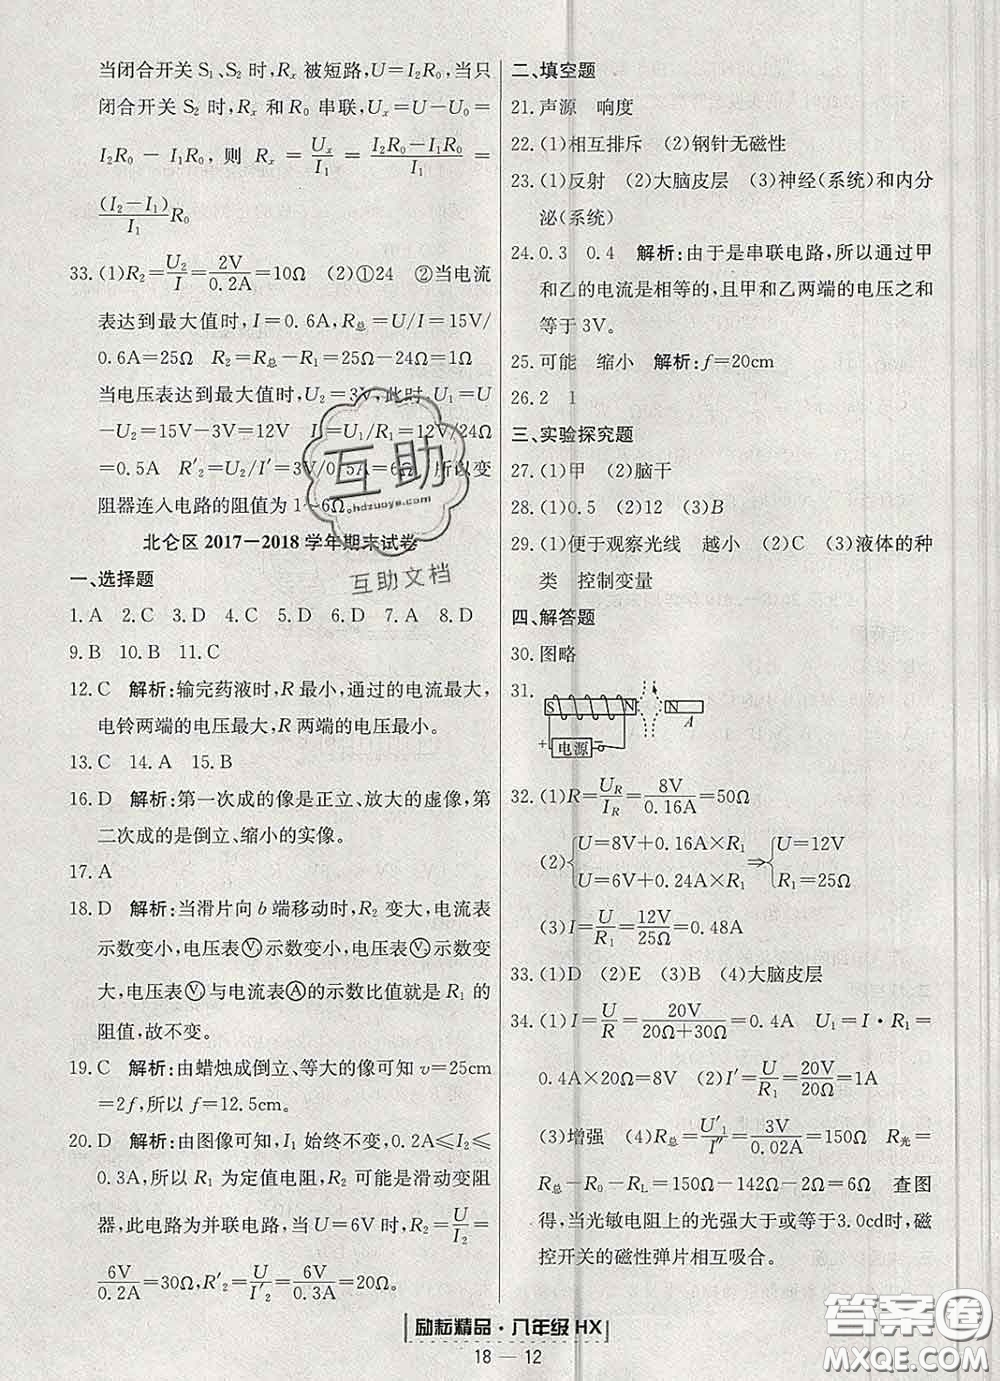 当闭合开关 S₁、S₂ 时,Rₓ 被短路,U=I₂R₀,当只
闭合开关 S₂ 时,Rₓ 和 R₀ 串联,Uₓ=U－U₀=
I₂R₀－I₁R₀,则 Rₓ=Uₓ/I₁=(I₂R₀－I₁R₀)/I₁=
(I₂－I₁)/I₁ R₀
33.(1)R₂=U₂/I=2V/0.2A=10Ω (2)①24 ②当电流
表达到最大值时,I=0.6A,R总=U/I=15V/
0.6A=25Ω R₂=R总－R₁=25Ω－24Ω=1Ω
当电压表达到最大值时,U₂=3V,此时,U₁=U
－U₂=15V－3V=12V I=U₁/R₁=12V/24Ω
=0.5A R′₂=U₂/I′=3V/0.5A=6Ω,所以变
阻器连入电路的阻值为 1～6Ω。
北仑区 2017－2018 学年期末试卷
一、选择题
1.A 2.C 3.D 4.C 5.D 6.D 7.A 8.D
9.B 10.B 11.C
12.C 解析:输完药液时,R 最小,通过的电流最大,
电铃两端的电压最大,R 两端的电压最小。
13.C 14.A 15.B
16.D 解析:第一次成的像是正立、放大的虚像,第
二次成的是倒立、缩小的实像。
17.A
18.D 解析:当滑片向 b 端移动时,R₂ 变大,电流表
示数变小,电压表Ⓥ₁示数变小,电压表Ⓥ₂示数变
大,电压表Ⓥ₁与电流表Ⓐ的示数比值就是 R₁ 的
阻值,故不变。
19.C 解析:由蜡烛成倒立、等大的像可知 v=25cm
=2f,所以 f=12.5cm。
20.D 解析:由图像可知,I₁ 始终不变,0.2A≤I₂≤
0.3A,所以 R₁ 为定值电阻,R₂ 可能是滑动变阻
器,此电路为并联电路,当 U=6V 时,R₂=U/I₂=
6V/0.2A=30Ω,R′₂=U/I′₂=6V/0.3A=20Ω。
二、填空题
21.声源 响度
22.(1)相互排斥 (2)钢针无磁性
23.(1)反射 (2)大脑皮层 (3)神经(系统)和内分
泌(系统)
24.0.3 0.4 解析:由于是串联电路,所以通过甲
和乙的电流是相等的,且甲和乙两端的电压之和
等于 3V。
25.可能 缩小 解析:f=20cm
26.2 1
三、实验探究题
27.(1)甲 (2)脑干
28.(1)0.5 (2)12 (3)B
29.(1)便于观察光线 越小 (2)C (3)液体的种
类 控制变量
四、解答题
30.图略
31.
S N N
A
+ 电源 －
32.(1)R=U_R/I_R=8V/0.16A=50Ω
(2){U=8V+0.16A×R₁ ⇒ {U=12V
U=6V+0.24A×R₁ R₁=25Ω
(3)I=U/R₁=12V/25Ω=0.48A
33.(1)D (2)E (3)B (4)大脑皮层
34.(1)I=U/R=20V/(20Ω+30Ω)=0.4A U₁=I·R₁=
0.4A×20Ω=8V (2)I′=U/R₁=20V/20Ω=1A
(3)增强 (4)R总=U′₁/I″=3V/0.02A=150Ω R光=
R总－R₀－R_L=150Ω－142Ω－2Ω=6Ω 查图
得,当光敏电阻上的光强大于或等于3.0cd时,磁
控开关的磁性弹片相互吸合。
互助
ohdzuoye.com
互助文档
励耘精品·八年级 HX
18 — 12
答案圈
MXQE.COM